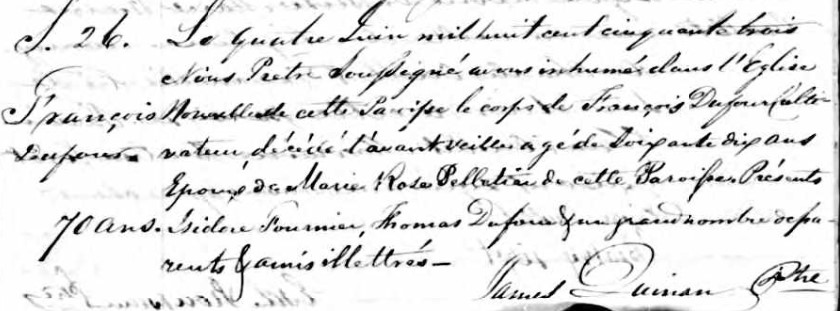 S. 26. Le quatre Juin mil huit cent cinquante trois
Nous Prêtre Soussigné avons inhumé dans l'Eglise
François Nouvelle de cette Paroisse le corps de François Dufour Culti-
Dufour vateur, décédé l'avant veille agé de Soixante dix ans
Epoux de Marie Rose Pelletier de cette Paroisse. Présents
70 ans. Isidore Fournier, Thomas Dufour & un grand nombre de pa-
rents & amis illettrés —
James Quinan Ptre